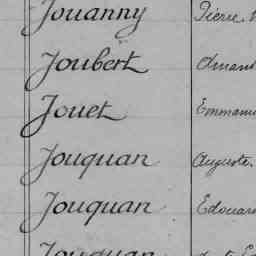 Jouanny Pierre
Joubert Amand
Jouet Emmanu
Jouquan Auguste
Jouquan Edouar
Jouquan